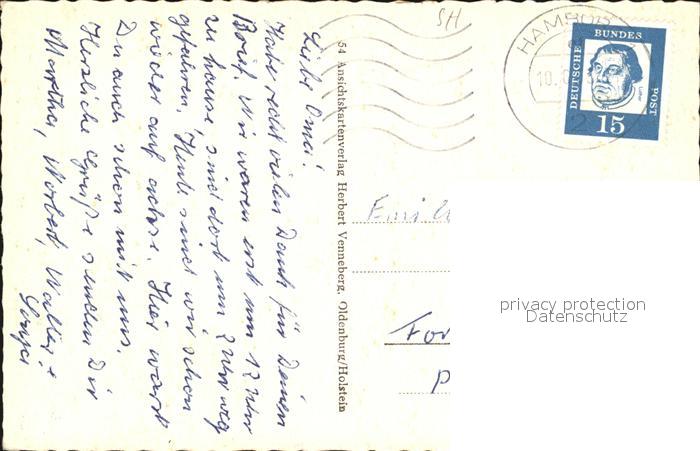 Liebe Oma!
Habe recht vielen Dank für Deinen
Brief. Wir waren erst um 12 Uhr
zu hause, sind dort um 2 Uhr weg
gefahren. Heute sind wir schon
wieder auf achse. Hier warst
Du auch schon mit uns.
Herzliche Grüße senden Dir
Martha, Norbert, Walter +
54 Ansichtskartenverlag Herbert Venneberg, Oldenburg/Holstein
SH
HAMBUR
10.
2
DEUTSCHE BUNDES POST
Luther
15
Emil
privacy protection
Datenschutz
For
P